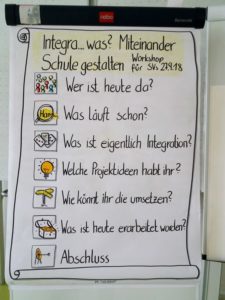 nobo
Integra...was? Miteinander
Schule gestalten Workshop
für SVs 27.9.18
Wer ist heute da?
Was läuft schon?
Was ist eigentlich Integration?
Welche Projektideen habt ihr?
Wie könnt ihr die umsetzen?
Was ist heute erarbeitet worden?
Abschluss